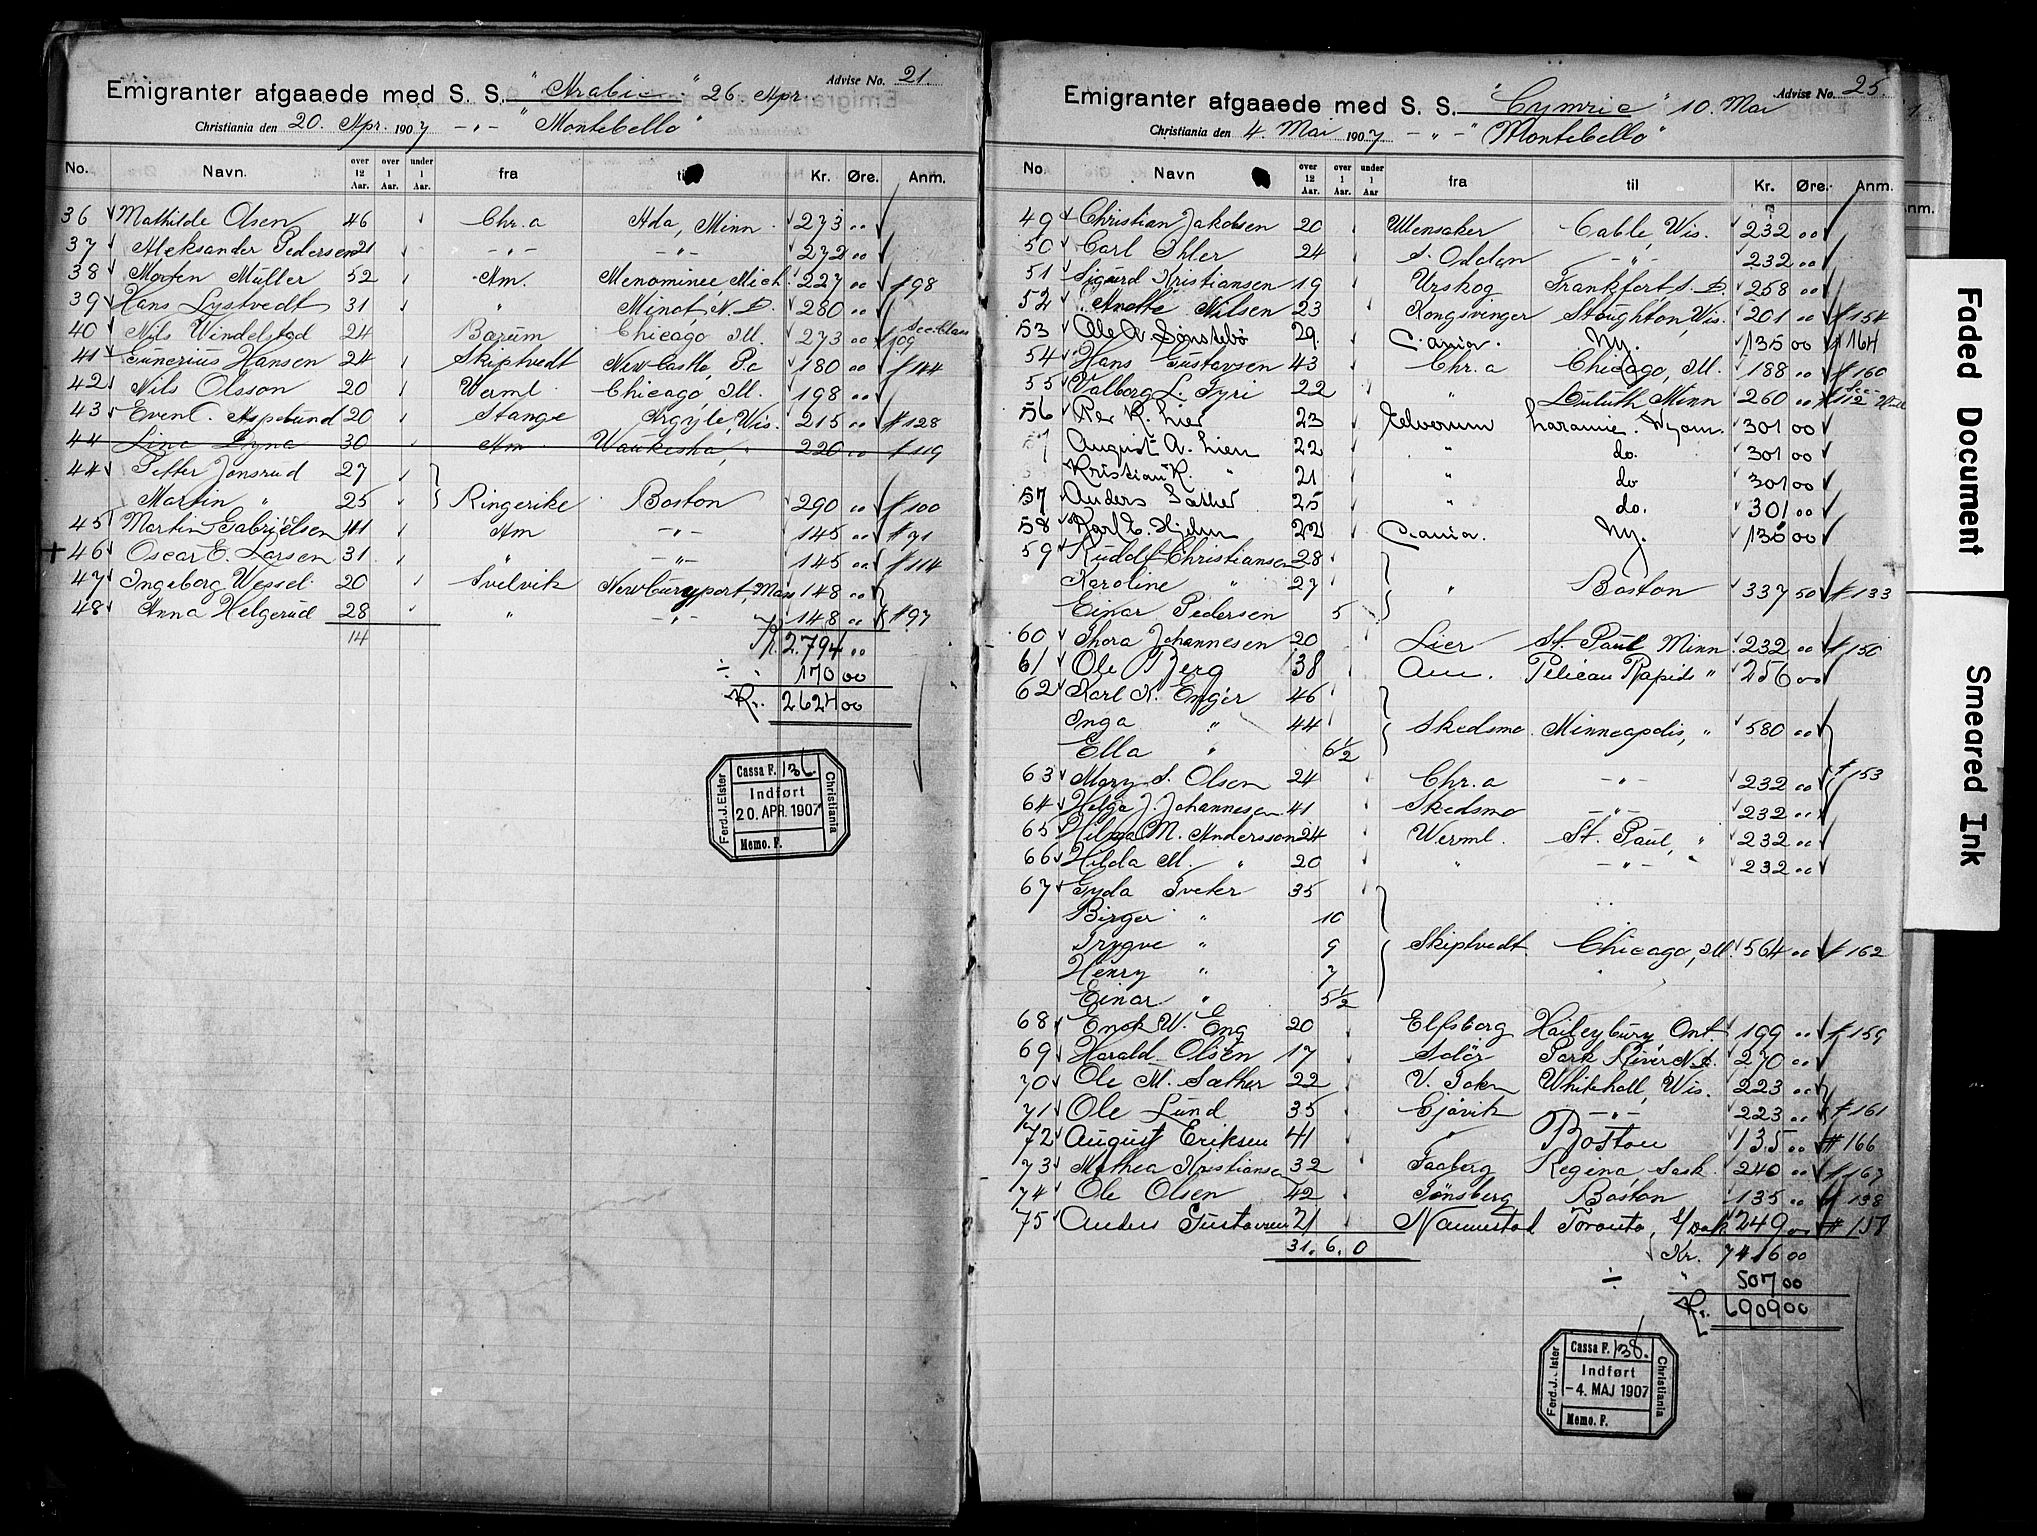 Advise No. 21.
Emigranter afgaaede med S. S. "Arabic" 26 Apr
Christiania den 20. Apr. 1907 -„- "Montebello"
No. Navn. over 12 Aar. over 1 Aar. under 1 Aar. fra til Kr. Øre. Anm.
36 Mathilde Olsen 46 Chr.a Ada, Minn 273 „
37 Aleksander Pedersen 21 -„- -„- 272 „
38 Morten Müller 52 Am. Menominee, Mich. 227 „ # 98
39 Hans Lystvedt 31 „ Minot, N. D. 280 „
40 Nils Windelstad 24 Bærum Chicago Ill. 273 „ # 109 Sec. Class
41 Gunerius Hansen 24 Skiptvedt New Castle, Pa 180 „ # 144
42 Nils Olsson 20 Werml. Chicago Ill. 198 „
43 Evenl. Aspelund 20 Stange Argyle, Wis. 215 „ # 128
44 Lina Lyna 30 Am Waukesha, „ 220 „ # 119
44 Petter Jonsrud 27
Martin „ 25 Ringerike Boston 290 „ # 100
45 Martin Gabrielsen 41 Am -„- 145 „ # 71
+ 46 Oscar E. Larsen 31 „ -„- 145 „ # 114
47 Ingeborg Wessel 20 Svelvik Newburyport, Mass 148 „
48 Anna Helgerud 28 „ -„- 148 „ # 97
14 Kr. 2794 „
÷ „ 170 00
Kr. 2624 00
Ferd. J. Elster
Cassa F. 136
Indført
20. APR. 1907
Memo. F.
Christiania
Advise No. 25.
Emigranter afgaaede med S. S. "Cymric" 10. Mai
Christiania den 4. Mai 1907 -„- "Montebello"
No. Navn over 12 Aar. over 1 Aar. under 1 Aar fra til Kr. Øre. Anm.
49 Christian Jakobsen 20 Ullensaker Cable, Wis. 232 00
50 Carl Ihler 24 S. Oddan -„- 232 „
51 Sigurd Kristiansen 19 Urskog Frankfort S. D. 258 „
52 Anette Nilsen 23 Kongsvinger Stoughton, Wis. 201 „ # 154
53 Ole A. Sønstebö 29 C.ania. Ny. 135 00 # 164
54 Hans Gustavsen 43 Chr.a Chicago, Ill. 188 „ # 160
55 Valborg L. Fyri 22 „ Duluth, Minn 260 „ # 112
56 Per K. Lier 23 Elverum Laramie. Wyom. 301 00
August A. Lien 22 „ do. 301 00
Kristian K. „ 21 „ do 301 00
57 Anders Sæther 25 „ do. 301 00
58 Karl E. 22 C.ania. Ny. 135 00
59 Rudolf Christiansen 28
Karoline „ 27 „ Boston 337 50 # 133
Einar Pedersen 5
60 Thora Johannesen 20 Lier St. Paul Minn. 232 „ # 150
61 Ole Berg 38 Am. Pelican Rapids „ 256 00
62 Karl K. Enger 46
Inga „ 44 Skedsmo. Minneapolis, „ 580 „
Ella „ 6½
63 Mary S. Olsen 24 Chr.a -„- 232 „ # 153
64 Helga J. Johannesen 41 Skedsmo -„- 232 „
65 Hilma M. Andersson 24 Werml. St. Paul, „ 232 „
66 Hilda M. „ 20 „ -„- 232 „
67 Gyda Tveter 35
Birger „ 10
Trygve „ 9 Skiptvedt Chicago, Ill. 564 „ # 162
Henry „ 7
Einar „ 5½
68 Enok W. Eng 20 Elfsborg Haileybury, Ont. 199 „ # 159
69 Harald Olsen 17 Solör Park River N. D. 270 „
70 Ole M. Sæther 22 V. Toten Whitehall, Wis. 223 „
71 Ole Lund 35 Gjövik -„- 223 „ # 161
72 August Eriksen 41 „ Boston 135 00 # 166
73 Mathea Kristiansen 32 Faaberg Regina, Sask. 240 „ # 167
74 Ole Olsen 42 Tönsberg Boston 135 „ # 138
75 Anders Gustavsen 21 Naunestad Toronto, S/Dak. 249 00 # 158
31. 6. 0
Kr. 7416 00
÷ „ 507 00
Kr. 6909 00
Ferd. J. Elster
Cassa F. 138.
Indført
-4. MAJ 1907
Memo. F.
Christiania
Faded Document
Smeared Ink